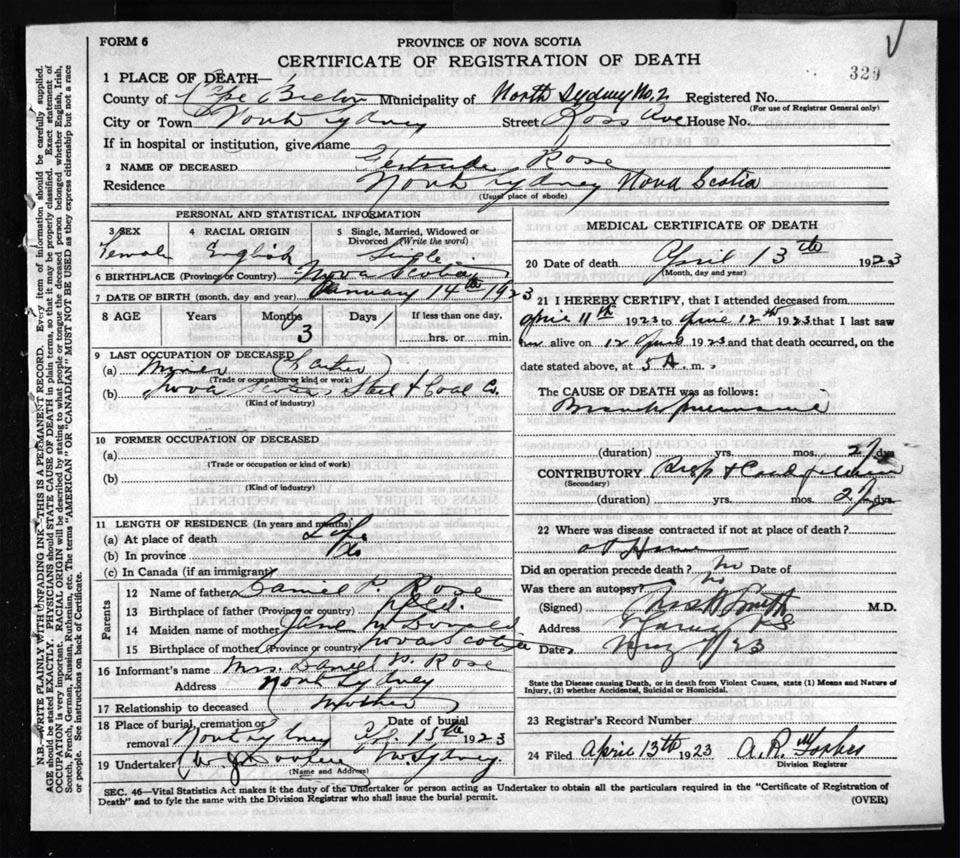 FORM 6
PROVINCE OF NOVA SCOTIA
CERTIFICATE OF REGISTRATION OF DEATH
329
1 PLACE OF DEATH—
County of Cape Breton Municipality of North Sydney No. 2 Registered No.
(For use of Registrar General only)
City or Town North Sydney Street Ross Ave House No.
If in hospital or institution, give name
2 NAME OF DECEASED Gertrude Rose
Residence North Sydney Nova Scotia
(Usual place of abode)
PERSONAL AND STATISTICAL INFORMATION
3 SEX
Female
4 RACIAL ORIGIN
English
5 Single, Married, Widowed or Divorced (Write the word)
Single
6 BIRTHPLACE (Province or Country) Nova Scotia
7 DATE OF BIRTH (month, day and year) January 14th 1923
8 AGE Years Months 3 Days If less than one day,
hrs. or min.
9 LAST OCCUPATION OF DECEASED
(a) Miner (Father)
(Trade or occupation or kind or work)
(b) Nova Scotia Steel & Coal Co.
(Kind of industry)
10 FORMER OCCUPATION OF DECEASED
(a)
(Trade or occupation or kind of work)
(b)
(Kind of industry)
11 LENGTH OF RESIDENCE (In years and months)
(a) At place of death Life
(b) In province do
(c) In Canada (if an immigrant)
Parents
12 Name of father Daniel P. Rose
13 Birthplace of father (Province or country) Nfld.
14 Maiden name of mother Jane McDonald
15 Birthplace of mother (Province or country) Nova Scotia
16 Informant's name Mrs. Daniel P. Rose
Address North Sydney
17 Relationship to deceased (Mother)
18 Place of burial, cremation or removal North Sydney Date of burial Apl. 15th 1923
19 Undertaker No Sydney
(Name and Address)
MEDICAL CERTIFICATE OF DEATH
20 Date of death April 13th 1923
(Month, day and year)
21 I HEREBY CERTIFY, that I attended deceased from
April 11th 1923 to April 12th 1923 that I last saw
her alive on 12 April 1923 and that death occurred, on
date stated above, at 5 A. m.
The CAUSE OF DEATH was as follows:
Broncho pneumonia
(duration) yrs. mos. 2 dys.
CONTRIBUTORY Resp & Card failure
(Secondary)
(duration) yrs. mos. 2 dys.
22 Where was disease contracted if not at place of death?
at Home
Did an operation precede death? no Date of
Was there an autopsy? no
(Signed) Smith M.D.
Address
Date 23
State the Disease causing Death, or in death from Violent Causes, state (1) Means and Nature of
Injury, (2) whether Accidental, Suicidal or Homicidal.
23 Registrar's Record Number
24 Filed April 13th 1923 A. R. Forbes
Division Registrar
SEC. 46—Vital Statistics Act makes it the duty of the Undertaker or person acting as Undertaker to obtain all the particulars required in the "Certificate of Registration of
Death" and to fyle the same with the Division Registrar who shall issue the burial permit.
(OVER)
N.B.—WRITE PLAINLY WITH UNFADING INK—THIS IS A PERMANENT RECORD. Every item of information should be carefully supplied.
AGE should be stated EXACTLY. PHYSICIANS should STATE CAUSE OF DEATH in plain terms, so that it may be properly classified. Exact statement of
OCCUPATION is very important. RACIAL ORIGIN will be described by stating to what people or tongue the deceased person belonged whether English, Irish,
Scotch, French, German, Russian, Ruthenian, etc. The terms "AMERICAN" or "CANADIAN" MUST NOT BE USED as they express citizenship but not a race
or people. See instructions on back of Certificate.